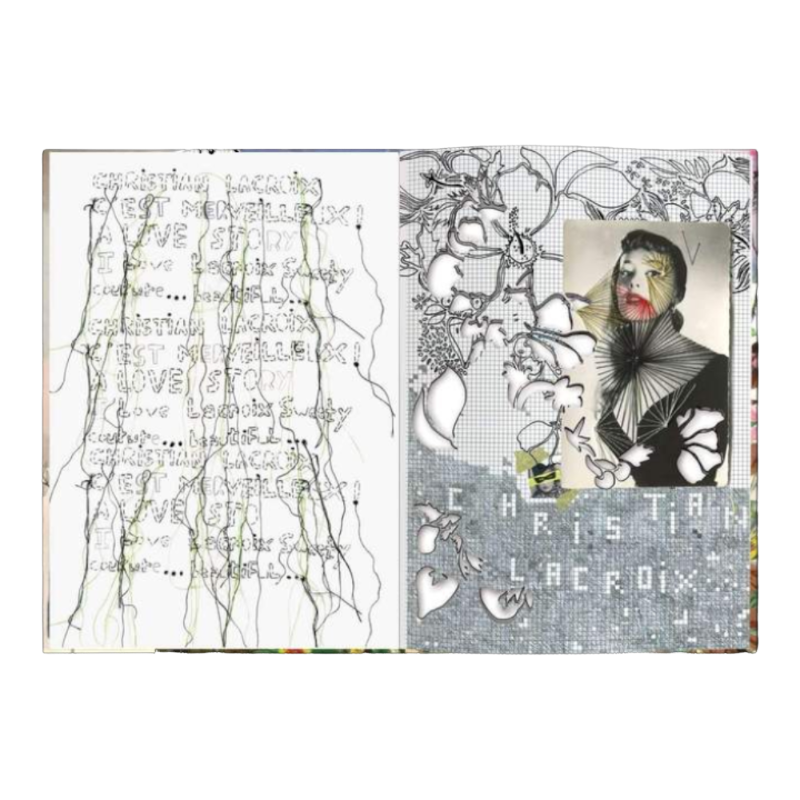 CHRISTIAN LACROIX
C'EST MERVEILLEUX!
A LOVE STORY
I Love Lacroix Sweety
couture... beautiful...
CHRISTIAN LACROIX
C'EST MERVEILLEUX!
A LOVE STORY
I Love Lacroix Sweety
couture... beautiful...
CHRISTIAN LACROIX
C'EST MERVEILLEUX!
A LOVE ST
I Love Lacroix Sweety
couture... beautiful...
V
CHRiSTiAN
LACROiX...